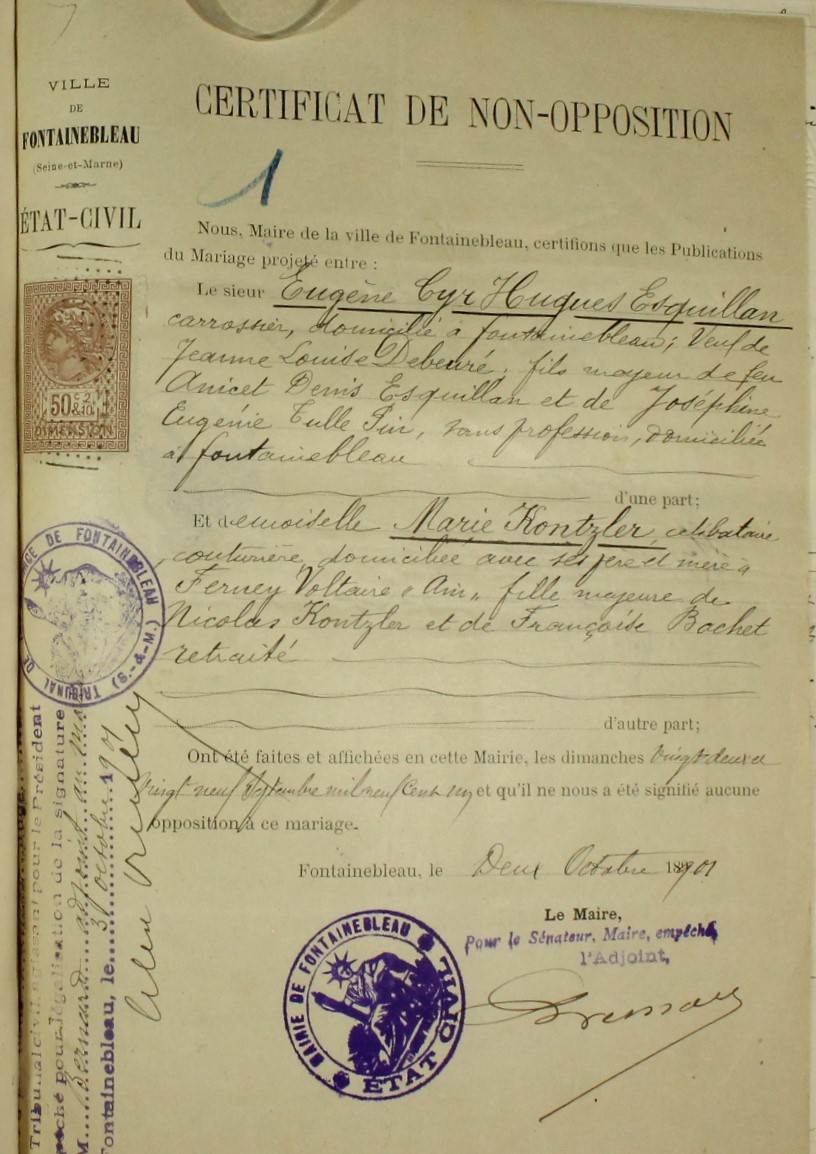 VILLE
DE
FONTAINEBLEAU
(Seine-et-Marne)
ÉTAT-CIVIL
50 c 2/10
DIMENSION
CERTIFICAT DE NON-OPPOSITION
1
Nous, Maire de la ville de Fontainebleau, certifions que les Publications
du Mariage projeté entre :
Le sieur Eugène Cyr Hugues Esquillan
carrossier, domicilié à fontainebleau; Veuf de
Jeanne Louise Debeuré; fils majeur de feu
Anicet Denis Esquillan et de Joséphine
Eugénie Tulle Pin, sans profession, domiciliée
à fontainebleau
d'une part;
Et demoiselle Marie Kontzler, celibataire
couturière, domiciliée avec ses pere et mère à
Ferney Voltaire "Ain" fille majeure de
Nicolas Kontzler et de Françoise Bochet
retraité
d'autre part;
Ont été faites et affichées en cette Mairie, les dimanches vingt deux et
vingt neuf Septembre mil neuf cent un et qu'il ne nous a été signifié aucune
opposition à ce mariage.
Fontainebleau, le Deux Octobre 1901
Le Maire,
Pour le Sénateur, Maire, empêché,
l'Adjoint,
MAIRIE DE FONTAINEBLEAU
ÉTAT CIVIL
DE FONTAINEBLEAU (S.-&-M.) TRIBUNAL DE
Tribunal civil, agissant pour le Président
pêché pour légalisation de la signature
M. Bernard adjoint au
Fontainebleau, le 31 octobre 1901